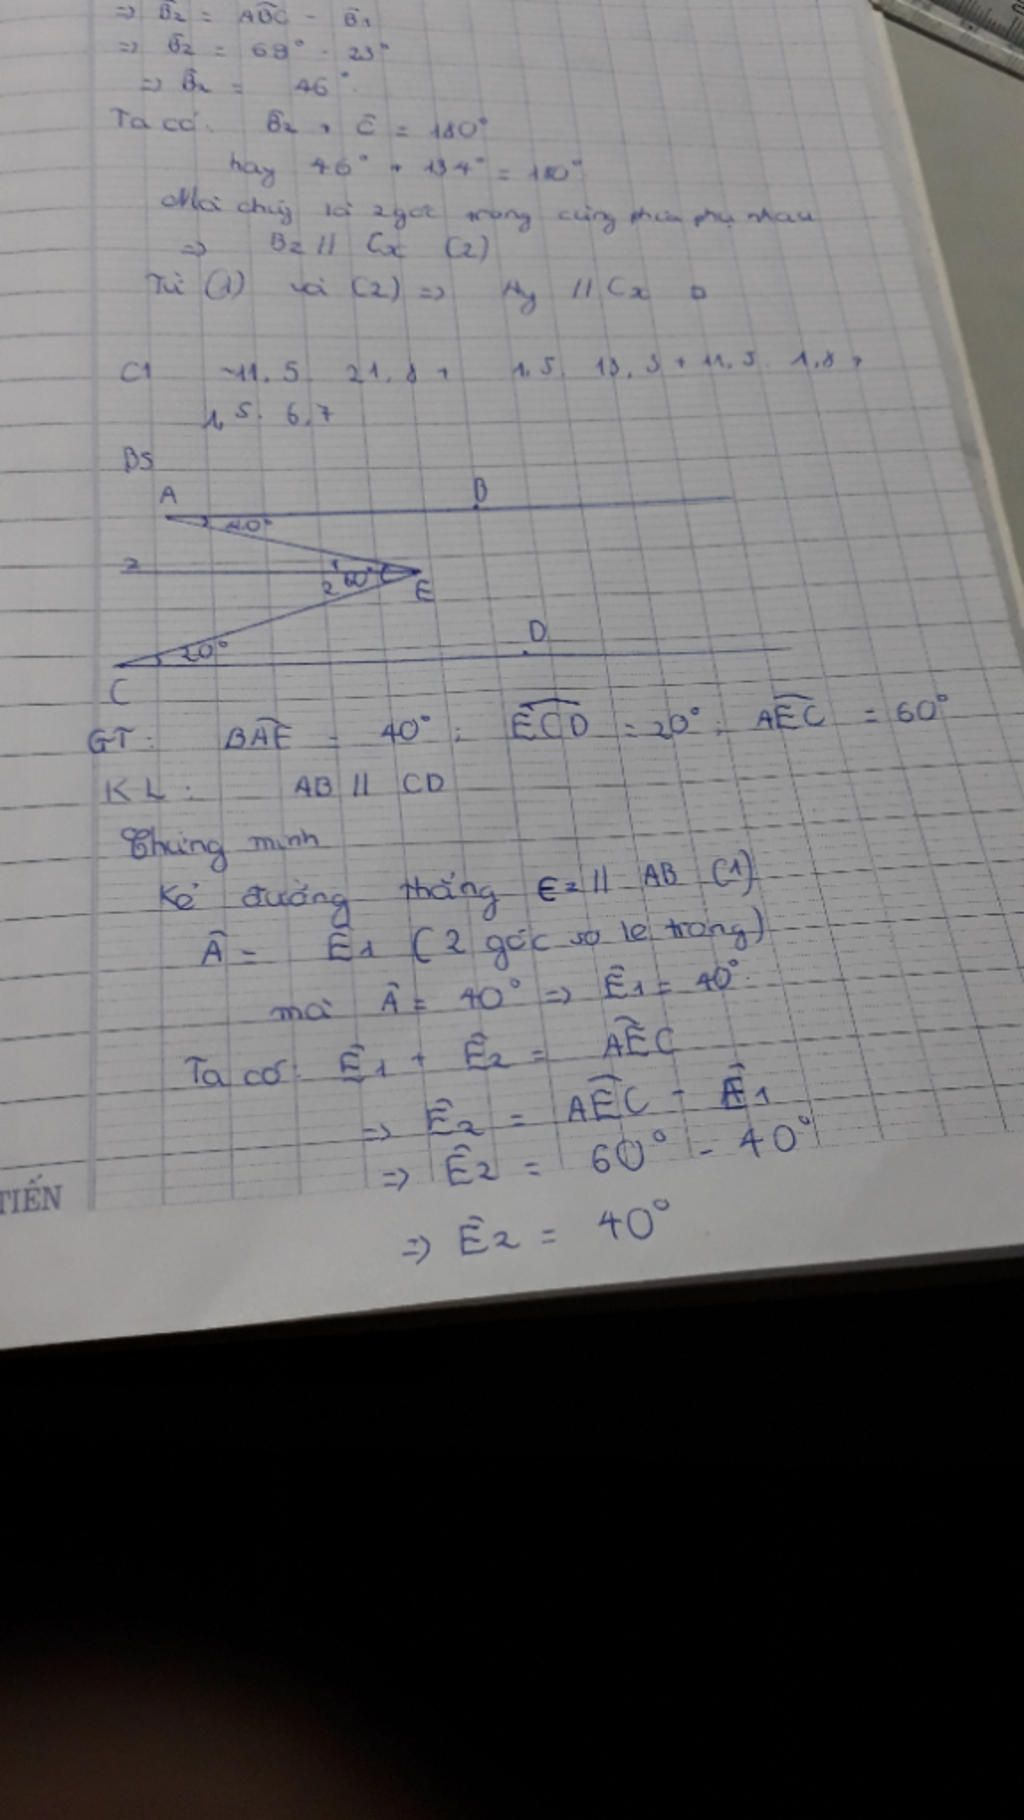 => B̂2 = ABC - B̂1
=> B̂2 = 69° - 23°
=> B̂2 = 46°
Ta có: B̂2 + Ĉ = 180°
hay 46° + 134° = 180°
Mà chúng là 2 góc trong cùng phía phụ nhau
=> Bz // Cx (2)
Từ (1) và (2) => Ay // Cx
C1 -11,5 . 21,8 + 1,5 . 13,3 + 11,5 . 1,8 +
1,5 . 6,7
B5
A B
40°
z 1
2 60° E
D
20°
C
GT: BÂE = 40° ; ECD = 20° ; AÊC = 60°
KL: AB // CD
Chứng minh
Kẻ đường thẳng Ez // AB (1)
Â = Ê1 (2 góc so le trong)
mà Â = 40° => Ê1 = 40°
Ta có: Ê1 + Ê2 = AÊC
=> Ê2 = AÊC - Ê1
=> Ê2 = 60° - 40°
=> Ê2 = 40°
TIẾN